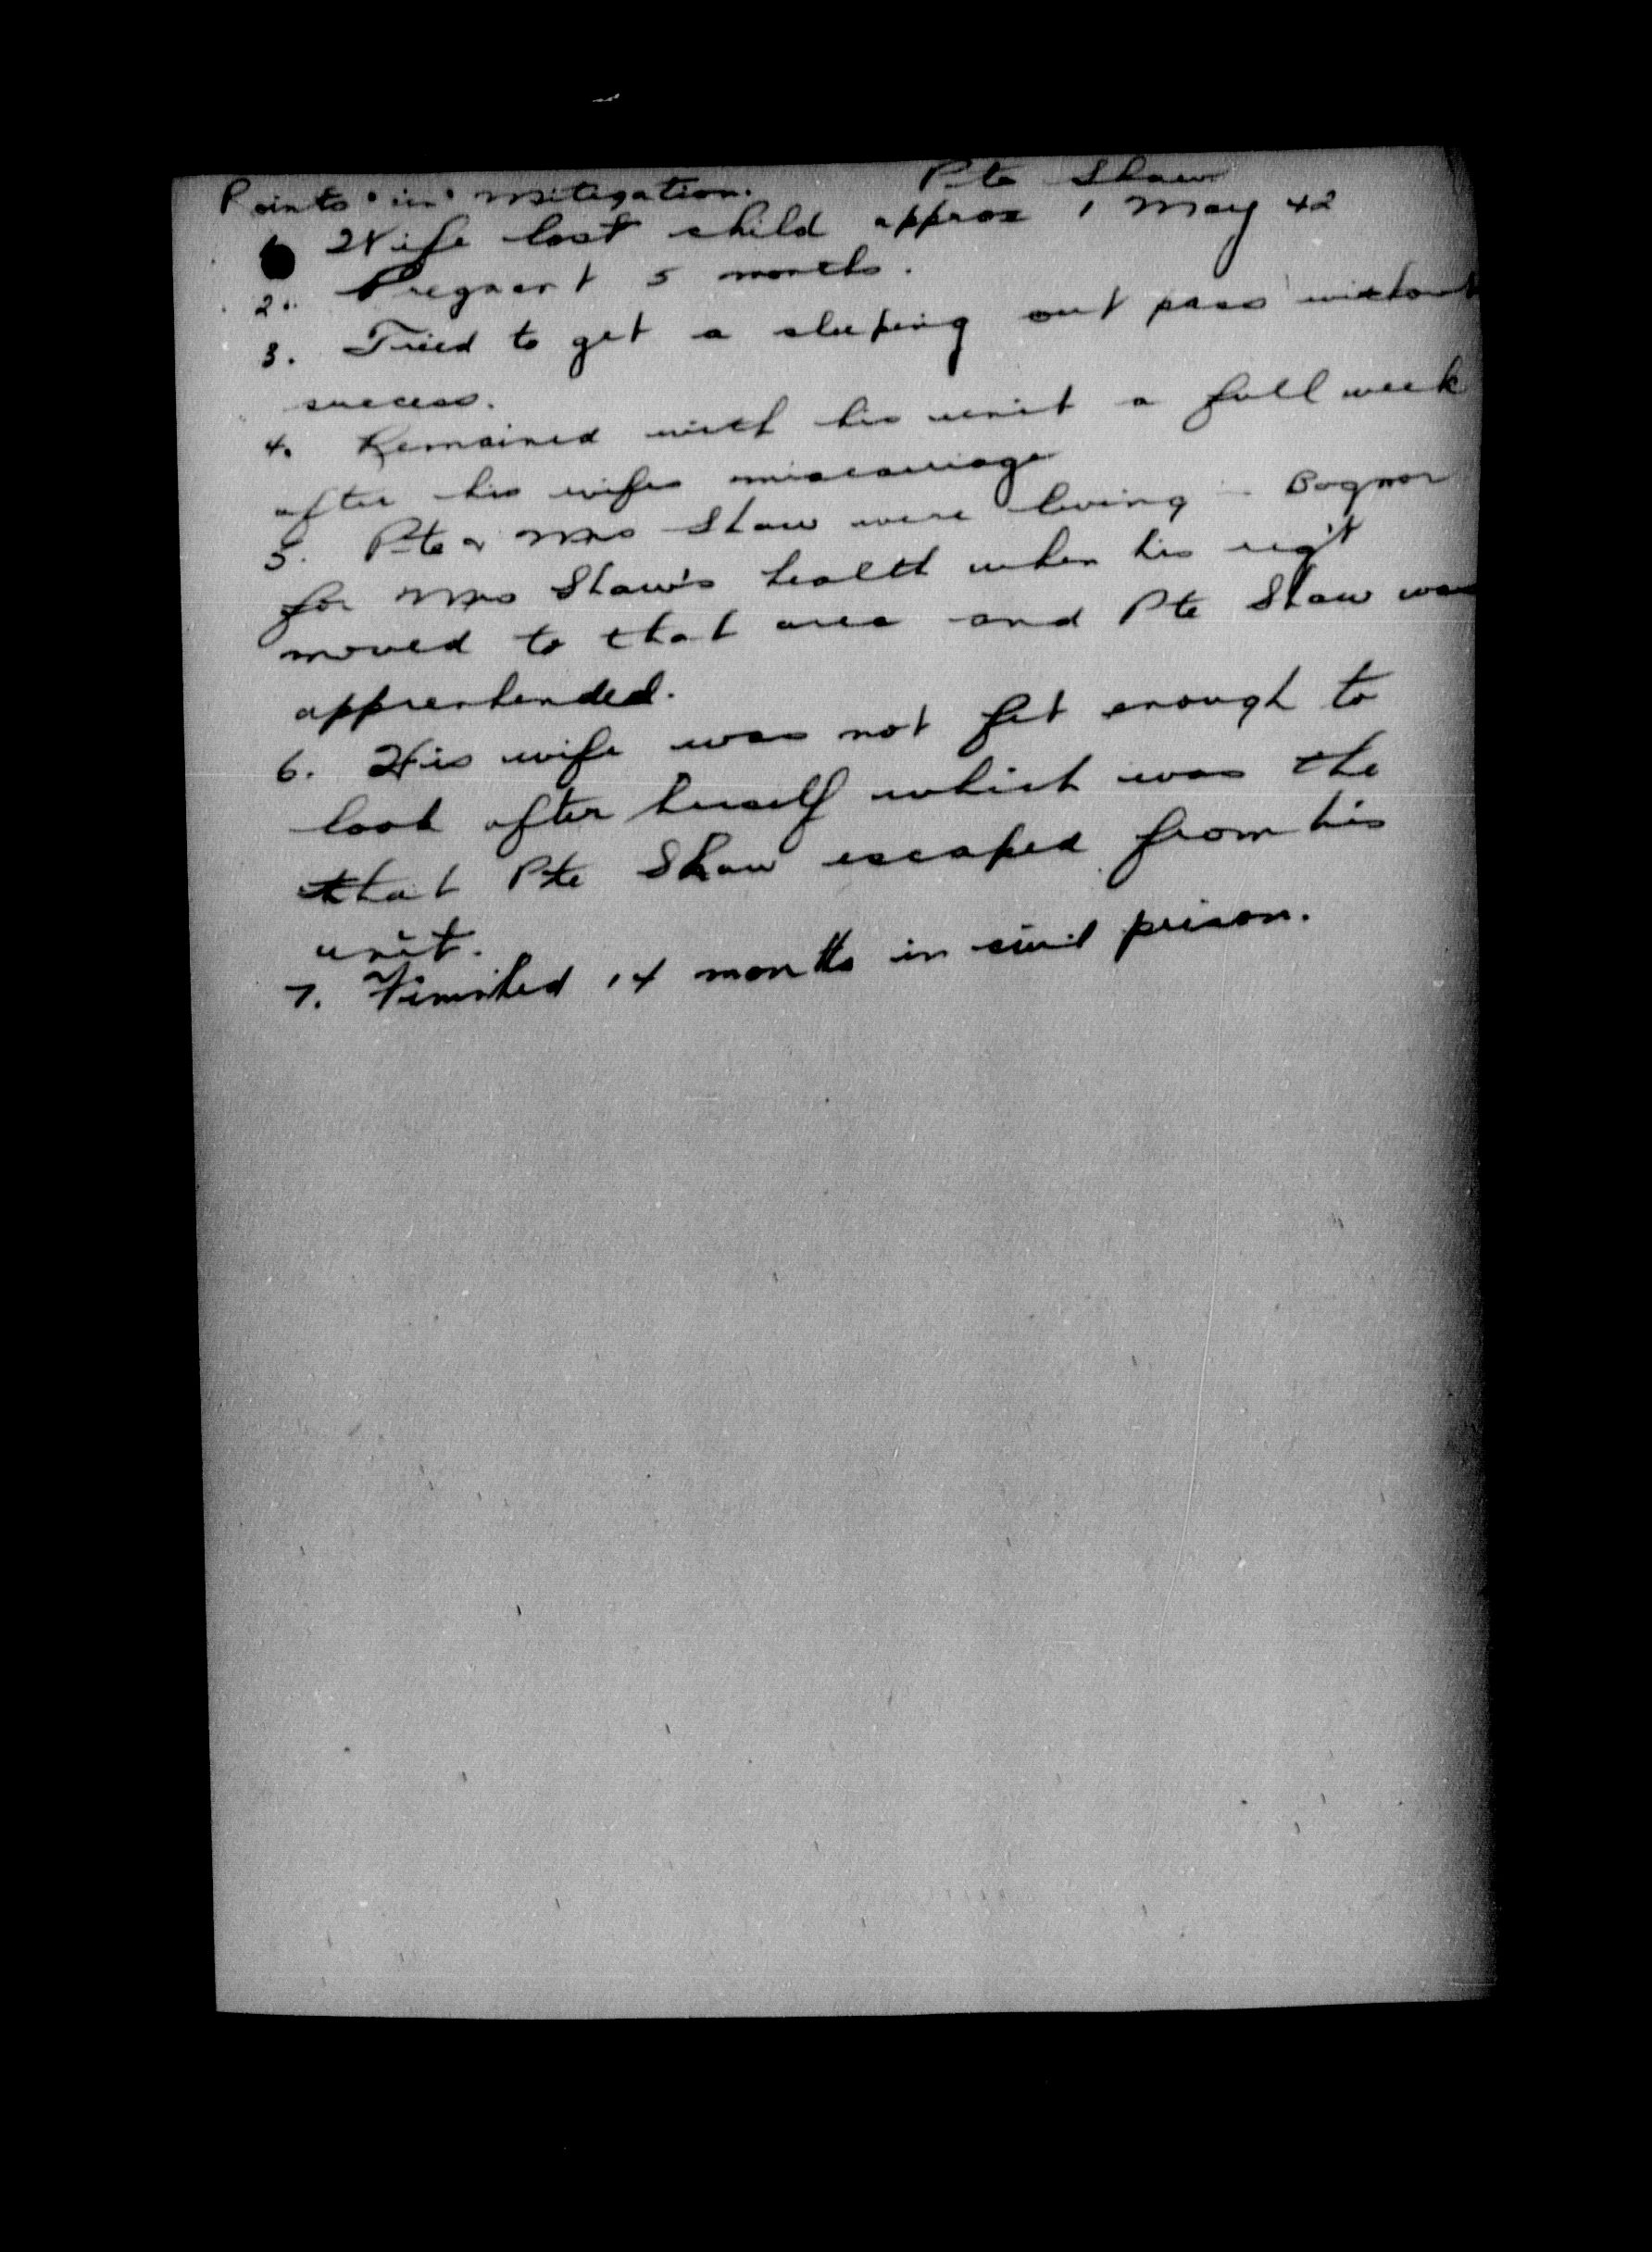 Points in mitigation. Pte Shaw
1. Wife lost child approx 1 May 42
2. Pregnant 5 months.
3. Tried to get a sleeping out pass without
success.
4. Remained with his unit a full week
after his wifes miscarriage
5. Pte & Mrs Shaw were living in Bognor
for Mrs Shaw's health when his reg't
moved to that area and Pte Shaw was
apprenhended.
6. His wife was not fit enough to
look after herself which was the
that Pte Shaw escaped from his
unit.
7. Finished 14 months in civil prison.